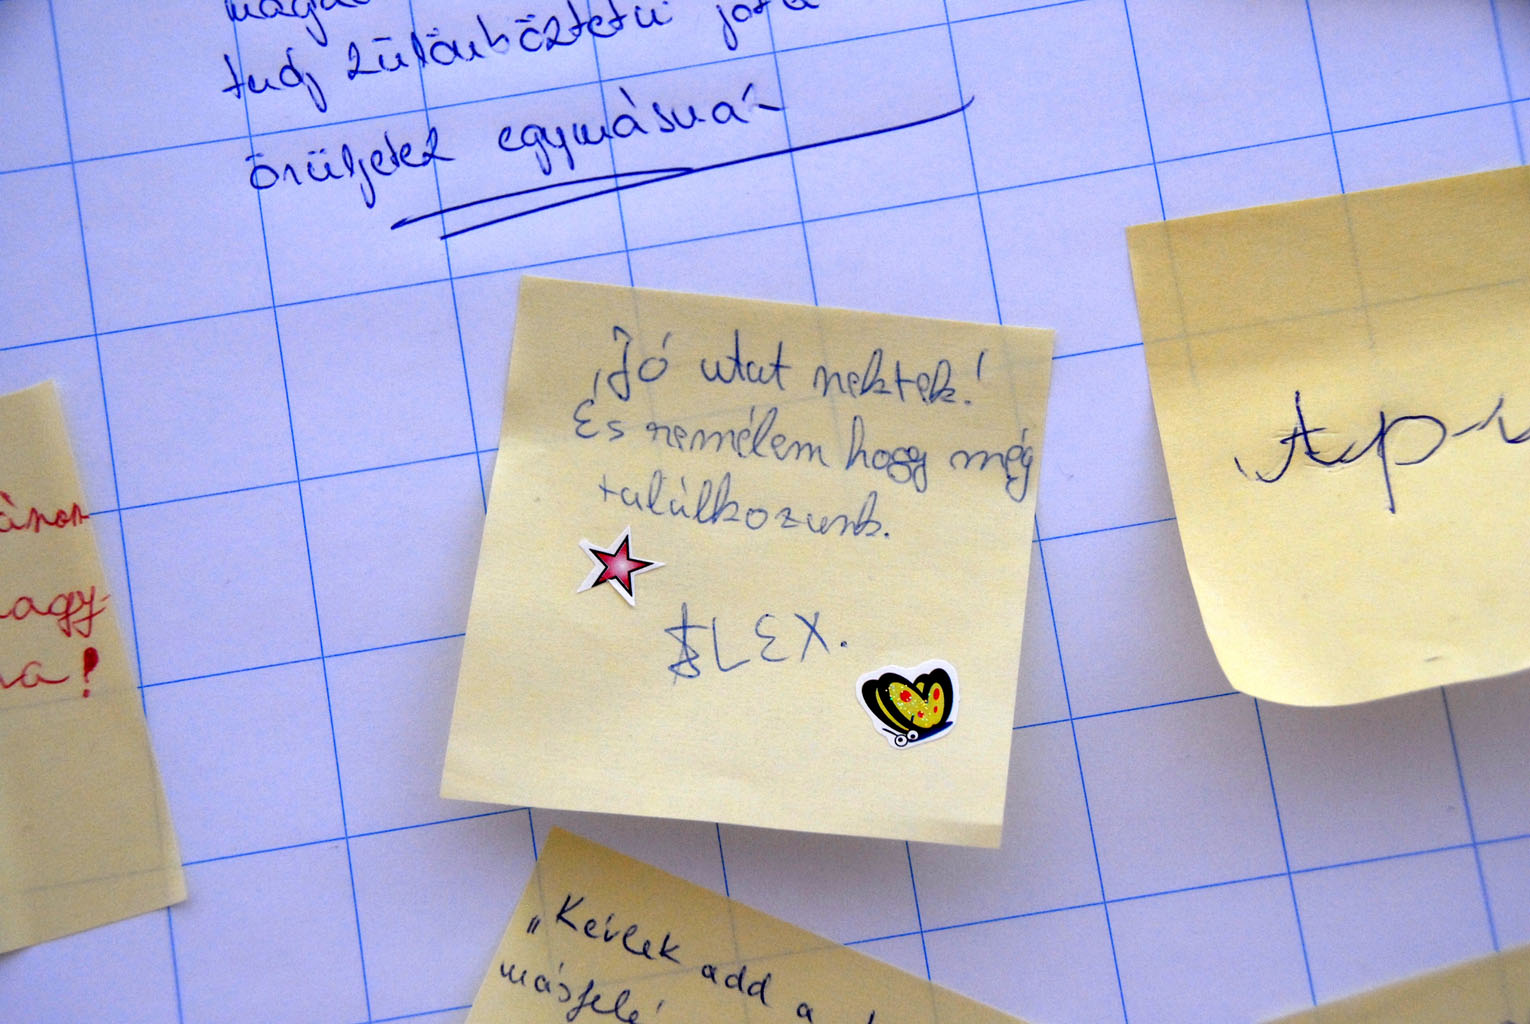 tudj különböztetni jót a
örüljetek egymásnak
Jó utat nektek!
És remélem hogy még
találkozunk.
ALEX.
nagy-
a!
"Kérlek add a
másfelé